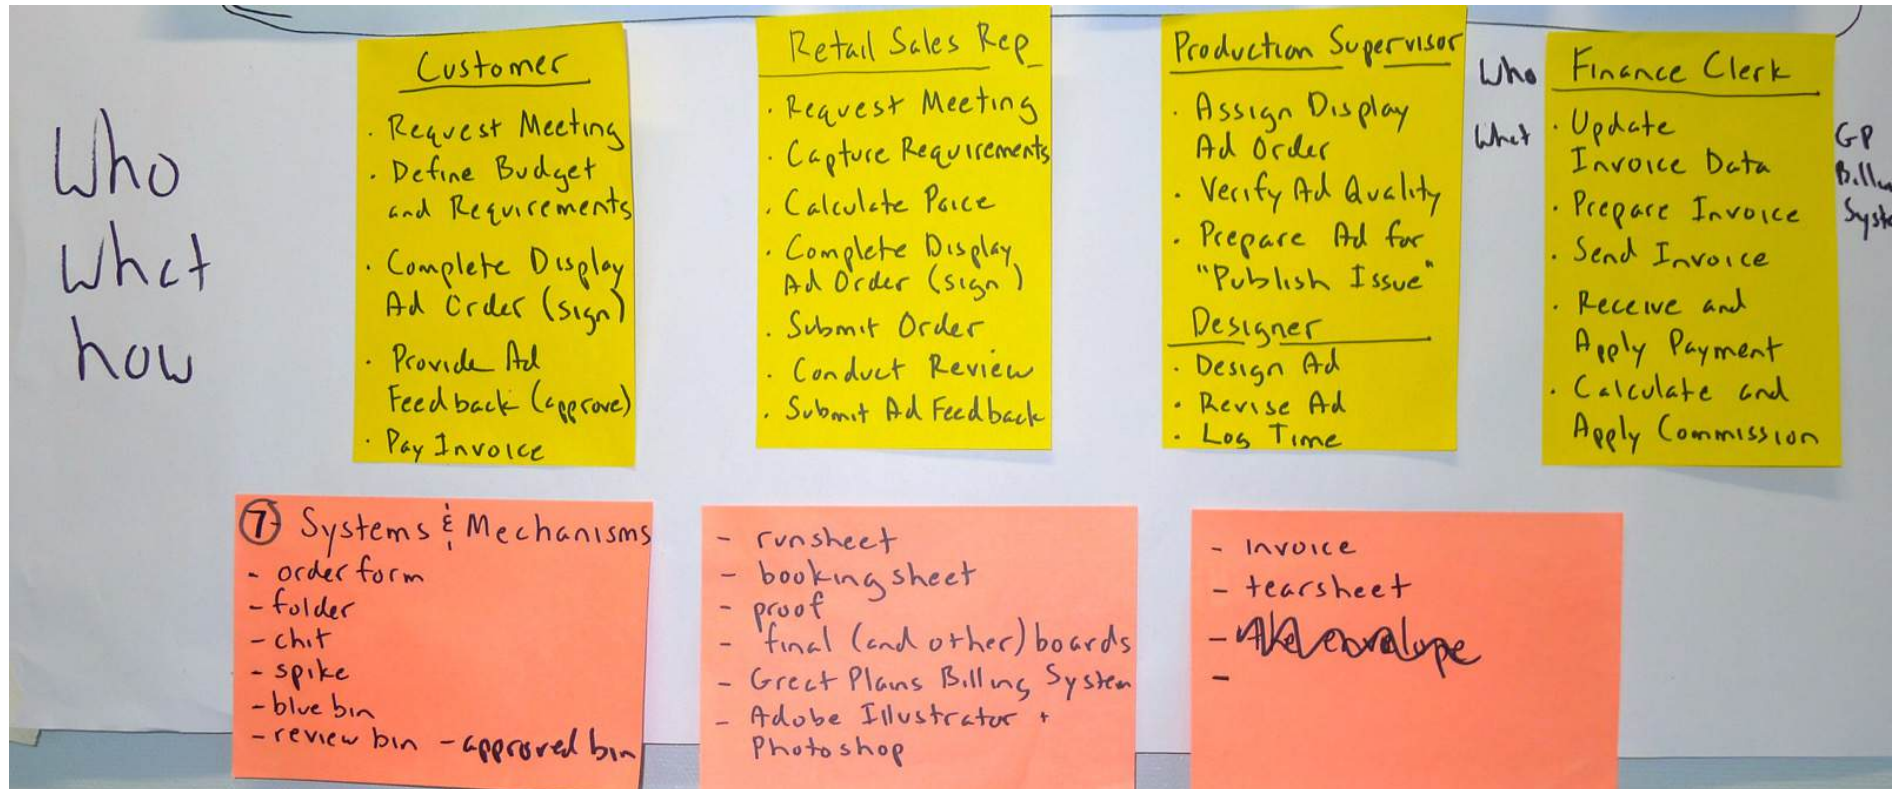 Who
What
how
Customer
· Request Meeting
· Define Budget
and Requirements
· Complete Display
Ad Order (sign)
· Provide Ad
Feedback (approve)
· Pay Invoice
Retail Sales Rep
· Request Meeting
· Capture Requirements
· Calculate Price
· Complete Display
Ad Order (sign)
· Submit Order
· Conduct Review
· Submit Ad Feedback
Production Supervisor
· Assign Display
Ad Order
· Verify Ad Quality
· Prepare Ad for
"Publish Issue"
Designer
· Design Ad
· Revise Ad
· Log Time
Who
What
Finance Clerk
· Update
Invoice Data
· Prepare Invoice
· Send Invoice
· Receive and
Apply Payment
· Calculate and
Apply Commission
GP
7 Systems & Mechanisms
- order form
- folder
- chit
- spike
- blue bin
- review bin - approved bin
- runsheet
- booking sheet
- proof
- final (and other) boards
- Great Plains Billing System
- Adobe Illustrator +
Photoshop
- invoice
- tearsheet
- envelope
-